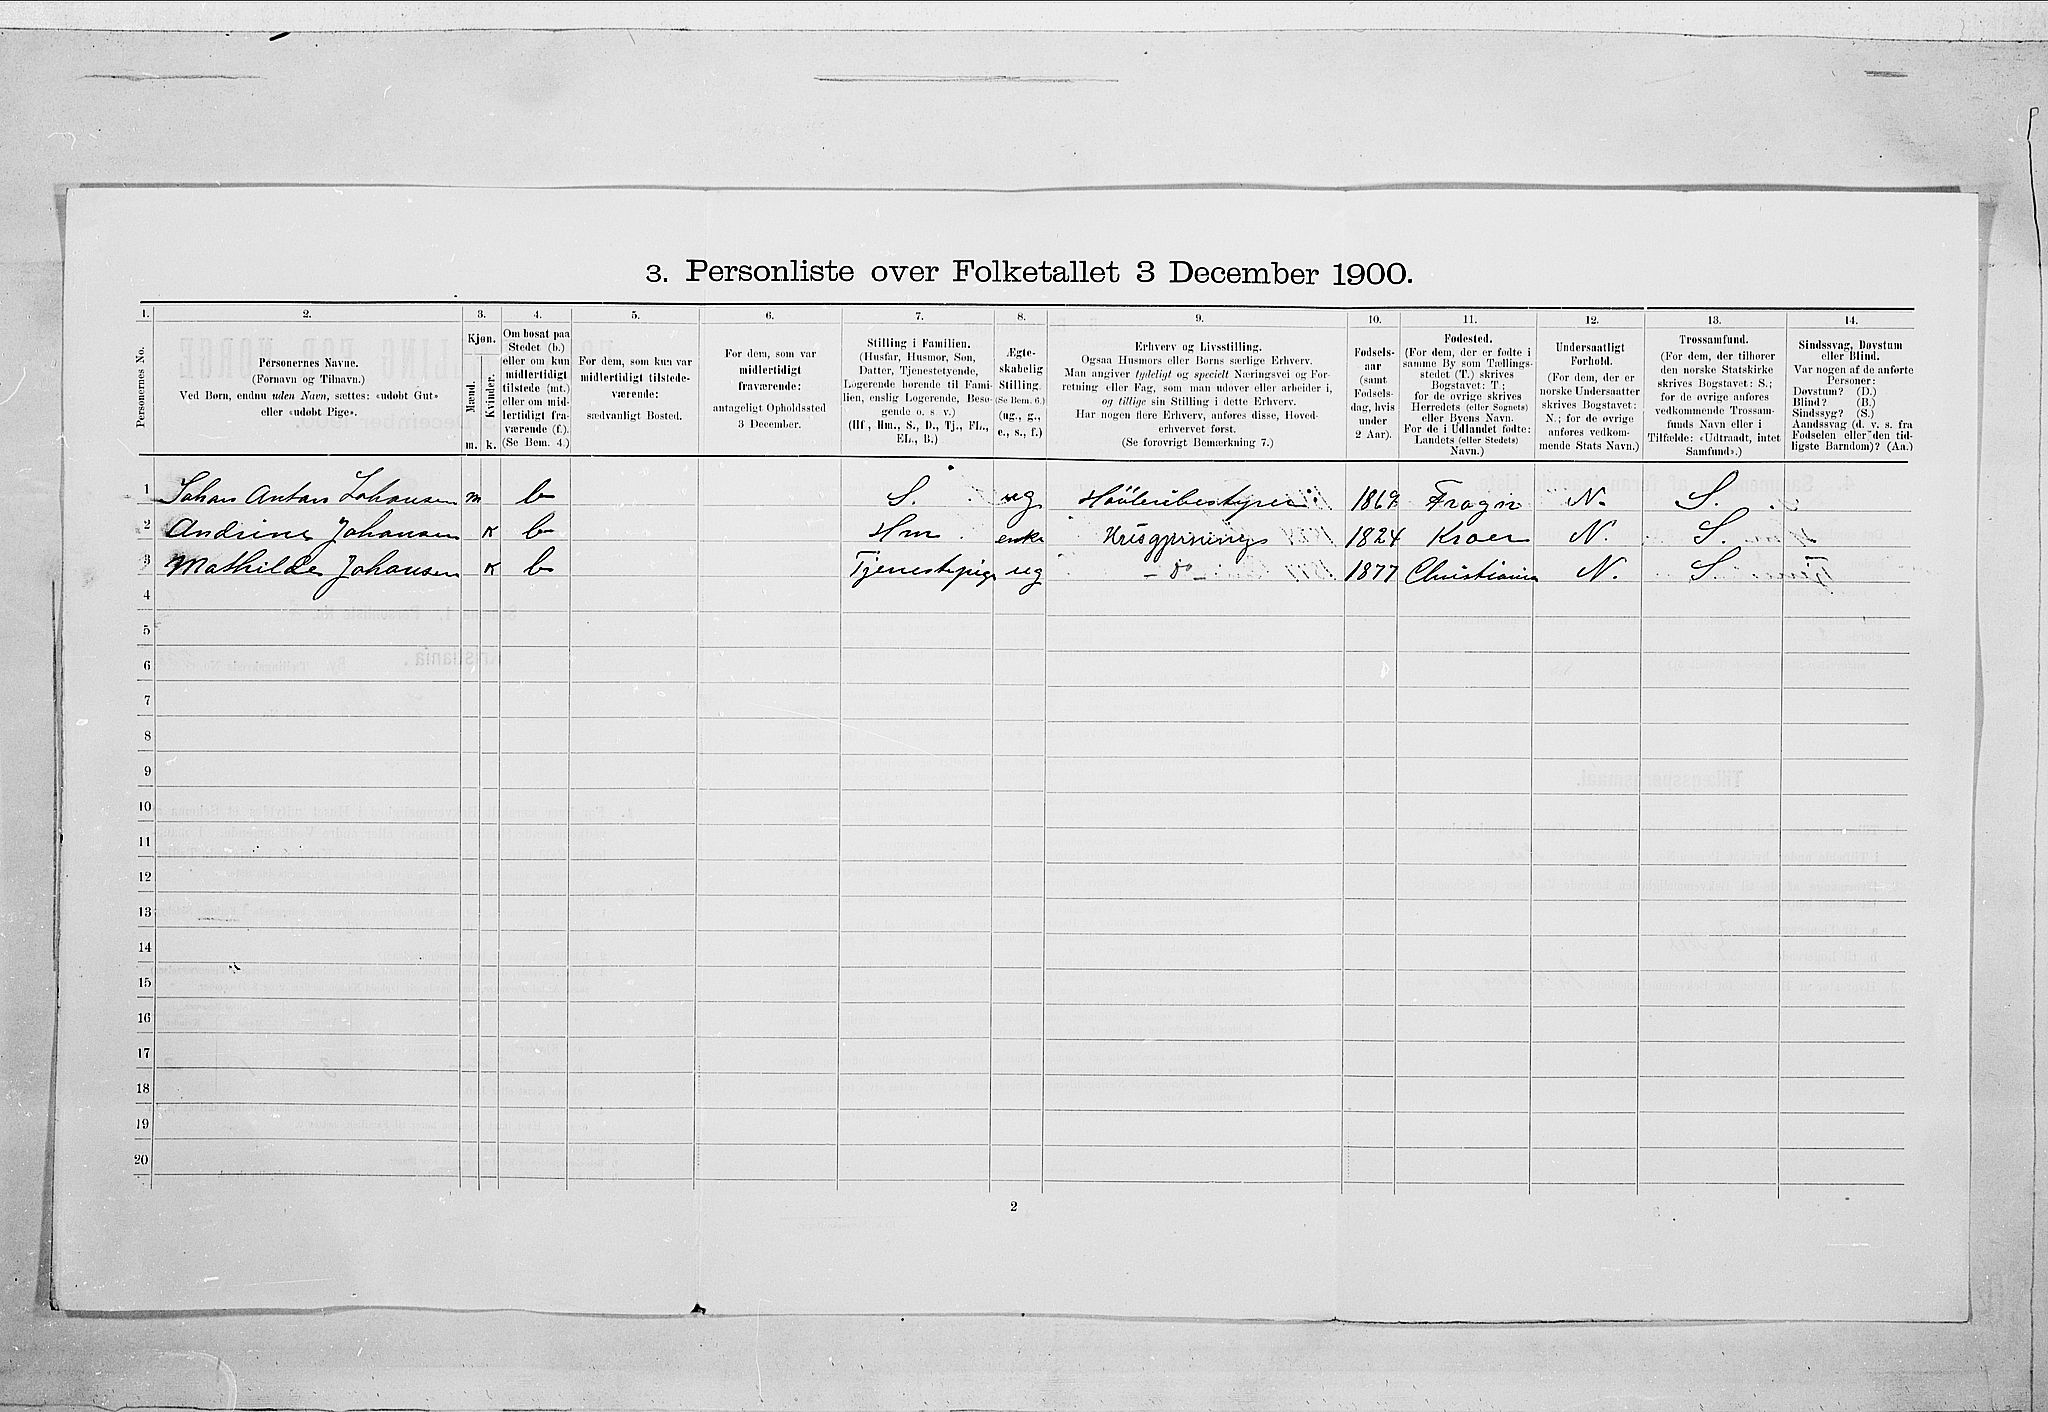 3. Personliste over Folketallet 3 December 1900.
1. 2. 3. 4. 5. 6. 7. 8. 9. 10. 11. 12. 13. 14.
Personernes No.
Personernes Navne.
(Fornavn og Tilnavn.)
Ved Børn, endnu uden Navn, sættes: «udøbt Gut»
eller «udøbt Pige».
Kjøn.
Mænd.
Kvinder.
m. k.
Om bosat paa
Stedet (b.)
eller om kun
midlertidigt
tilstede (mt.)
eller om mid-
lertidigt fra-
værende (f.).
(Se Bem. 4.)
For dem, som kun var
midlertidigt tilstede-
værende:
sædvanligt Bosted.
For dem, som var
midlertidigt
fraværende:
antageligt Opholdssted
3 December.
Stilling i Familien.
(Husfar, Husmor, Søn,
Datter, Tjenestetyende,
Logerende hørende til Fami-
lien, enslig Logerende, Besø-
gende o. s. v.)
(Hf., Hm., S., D., Tj., FL.,
EL., B.)
Ægte-
skabelig
Stilling.
(Se Bem. 6.)
(ug., g.,
e., s., f.)
Erhverv og Livsstilling.
Ogsaa Husmors eller Børns særlige Erhverv.
Man angiver tydeligt og specielt Næringsvei og For-
retning eller Fag, som man udøver eller arbeider i,
og tillige sin Stilling i dette Erhverv.
Har nogen flere Erhverv, anføres disse, Hoved-
erhvervet først.
(Se forøvrigt Bemærkning 7.)
Fødsels-
aar
(samt
Fødsels-
dag, hvis
under
2 Aar).
Fødested.
(For dem, der er fødte i
samme By som Tællings-
stedet (T.) skrives
Bogstavet: T;
for de øvrige skrives
Herredets (eller Sognets)
eller Byens Navn.
For de i Udlandet fødte:
Landets (eller Stedets)
Navn.)
Undersaatligt
Forhold.
(For dem, der er
norske Undersaatter
skrives Bogstavet:
N.; for de øvrige
anføres vedkom-
mende Stats Navn.)
Trossamfund.
(For dem, der tilhører
den norske Statskirke
skrives Bogstavet: S.;
for de øvrige anføres
vedkommende Trossam-
funds Navn eller i
Tilfælde: «Udtraadt, intet
Samfund».)
Sindssvag, Døvstum
eller Blind.
Var nogen af de anførte
Personer:
Døvstum? (D.)
Blind? (B.)
Sindssyg? (S.)
Aandssvag (d. v. s. fra
Fødselen eller den tid-
ligste Barndom)? (Aa.)
1 Johan Anton Johansen m b S. ug 1869 Frogn N. S.
2 Andrine Johansen k b Hm enke Husgjerning 1824 Kroer N. S.
3 Mathilde Johansen k b Tjenestepige ug - do - 1877 Christiania N. S
4
5
6
7
8
9
10
11
12
13
14
15
16
17
18
19
20
2